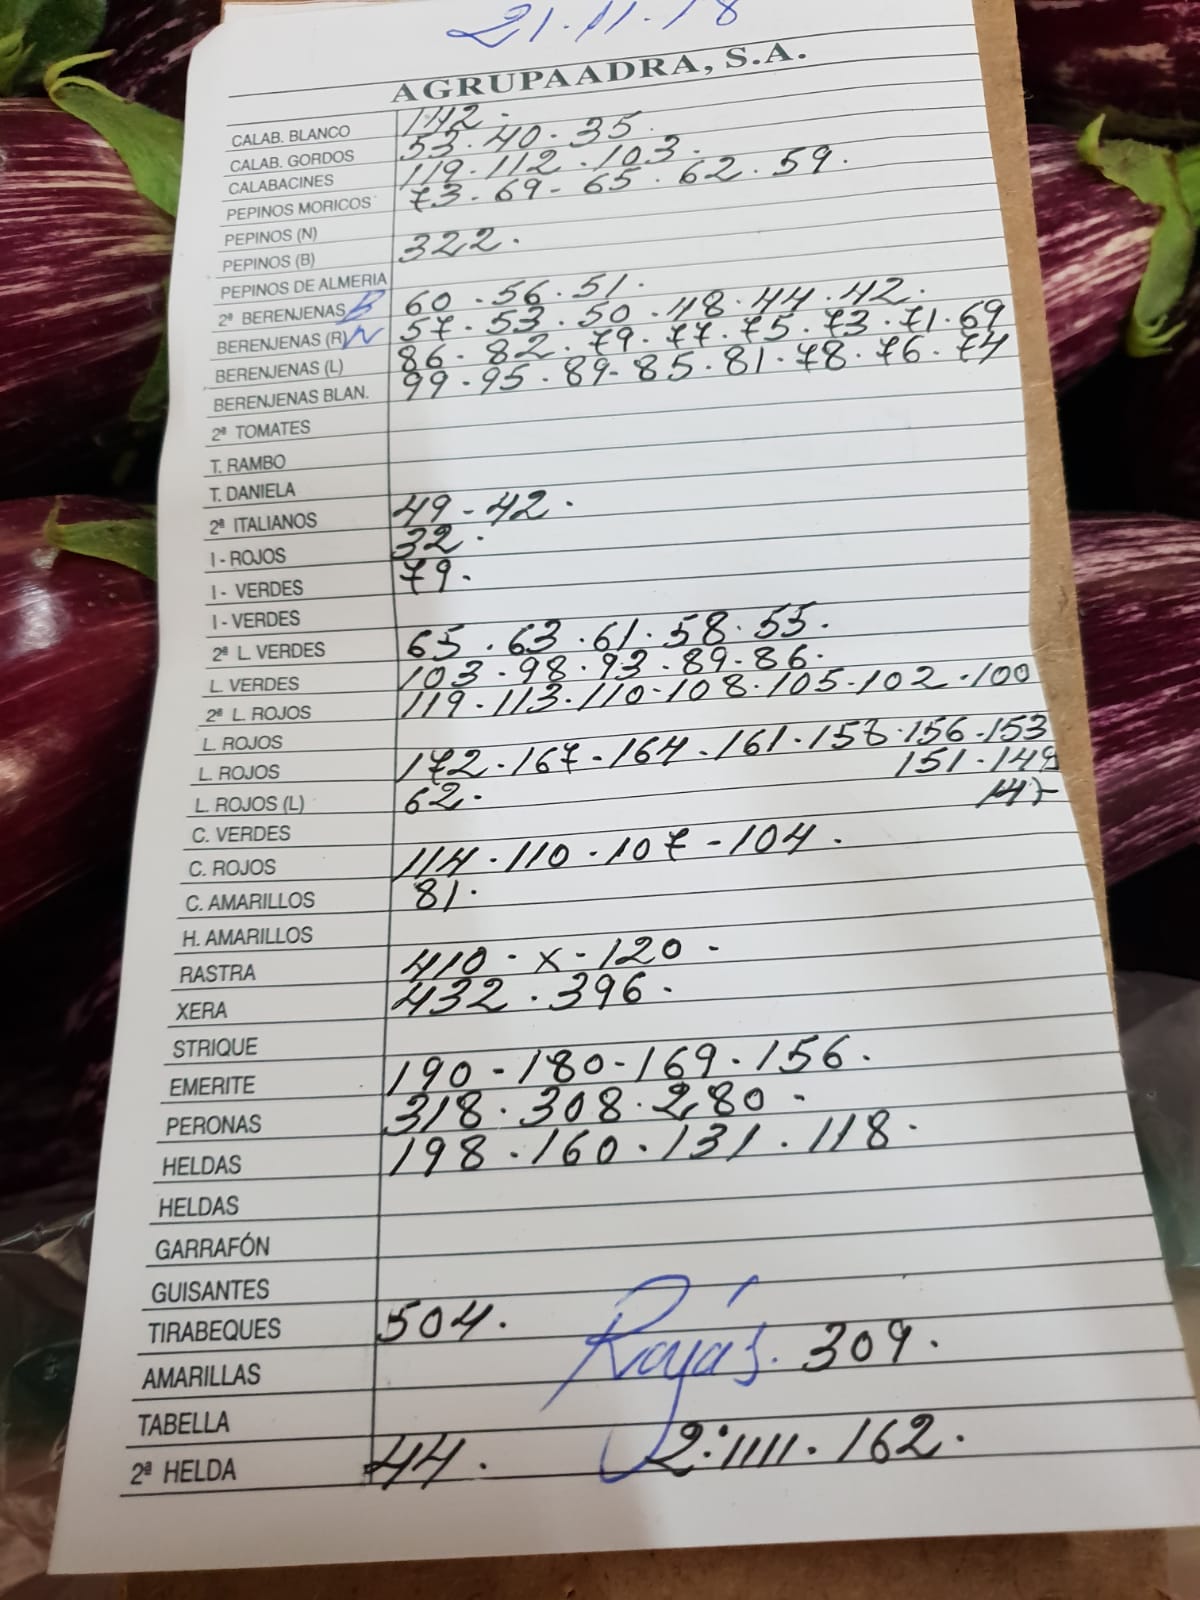 21.11.18
AGRUPAADRA, S.A.
CALAB. BLANCO 142.
CALAB. GORDOS 53.40.35.
CALABACINES 119.112.103.
PEPINOS MORICOS 73.69-65.62.59.
PEPINOS (N)
PEPINOS (B) 322.
PEPINOS DE ALMERIA
2ª BERENJENAS B 60.56.51.
BERENJENAS (R) N 57.53.50.48.44.42.
BERENJENAS (L) 86.82.79.77.75.73.71.69
BERENJENAS BLAN. 99.95.89-85.81.78.76.74
2ª TOMATES
T. RAMBO
T. DANIELA
2ª ITALIANOS 49-42.
I - ROJOS 32.
I - VERDES 79.
I - VERDES
2ª L. VERDES 65.63.61.58.55.
L. VERDES 103.98.93.89-86.
2ª L. ROJOS 119.113.110-108.105-102.100
L. ROJOS
L. ROJOS 172.167-164-161.158.156.153
151.149
L. ROJOS (L) 62.
C. VERDES
C. ROJOS 114.110.107-104.
C. AMARILLOS 81.
H. AMARILLOS
RASTRA 410-x-120-
XERA 432.396.
STRIQUE
EMERITE 190-180-169.156.
PERONAS 318.308.280-
HELDAS 198.160.131.118.
HELDAS
GARRAFÓN
GUISANTES
TIRABEQUES 504.
Rojas. 309.
AMARILLAS
TABELLA
2ª HELDA 44. 162.